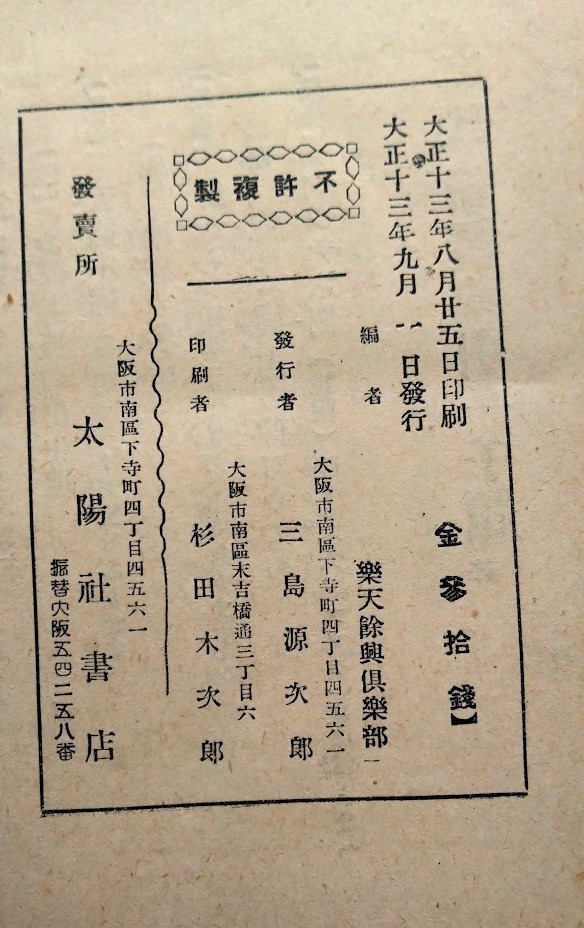 大正十三年八月廿五日印刷
大正十三年九月一日發行
金參拾錢】
不許複製
編者
樂天餘興俱樂部
發行者
大阪市南區下寺町四丁目四五六一
三島源次郎
印刷者
大阪市南區末吉橋通三丁目六
杉田木次郎
發賣所
大阪市南區下寺町四丁目四五六一
太陽社書店
振替大阪五四二五八番